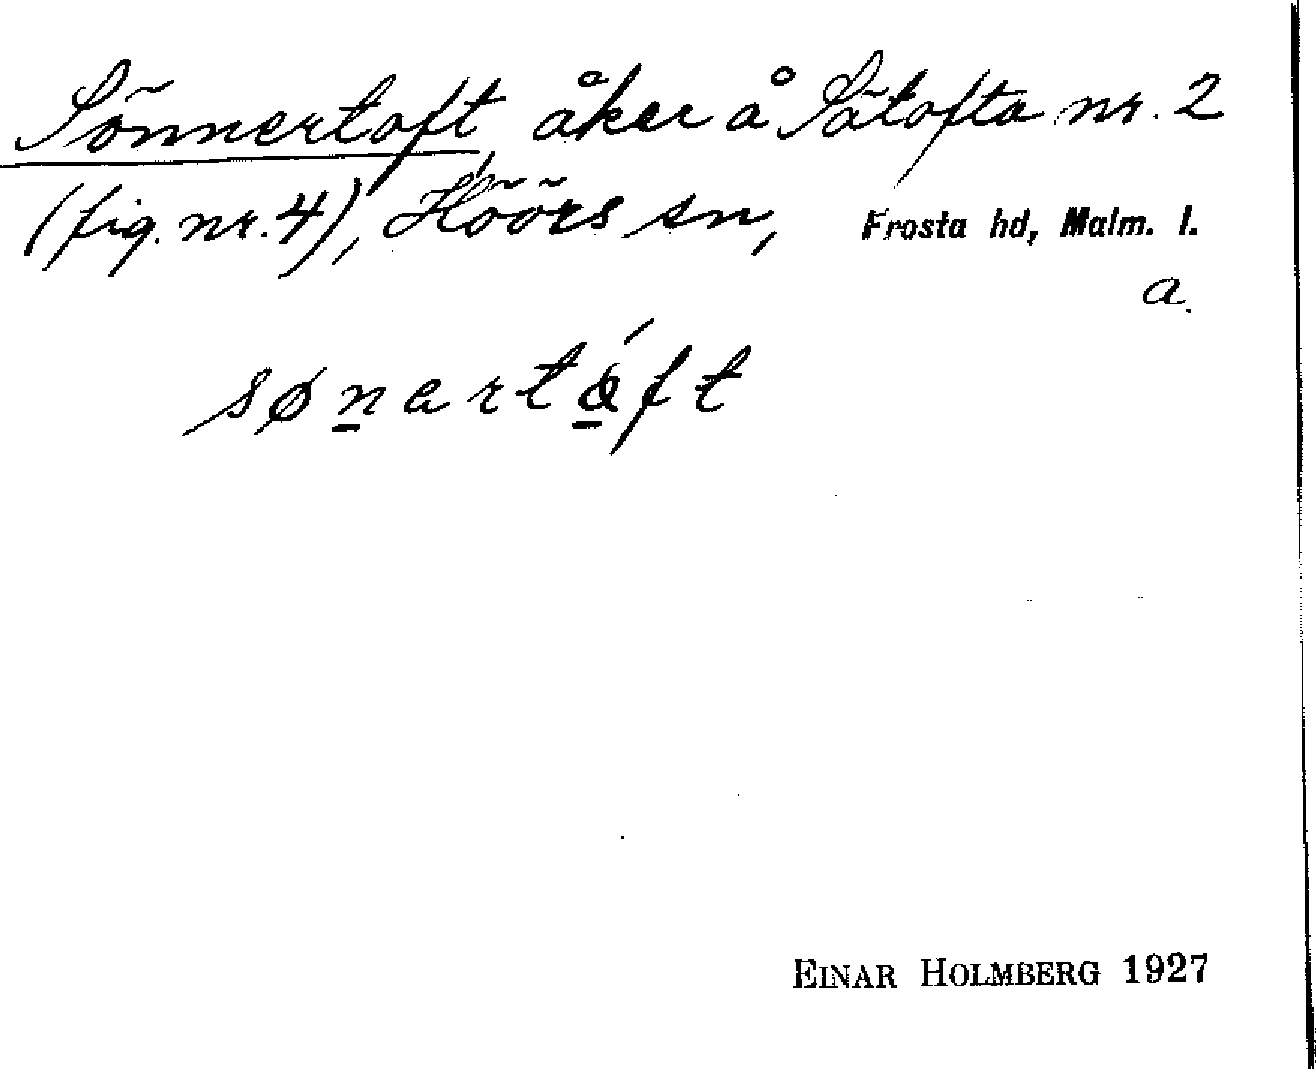 Sönnertoft, åker å Sätofta nr. 2
(fig. nr. 4), Höörs sn, Frosta hd, Malm. l.
a.
sønartåft
EINAR HOLMBERG 1927